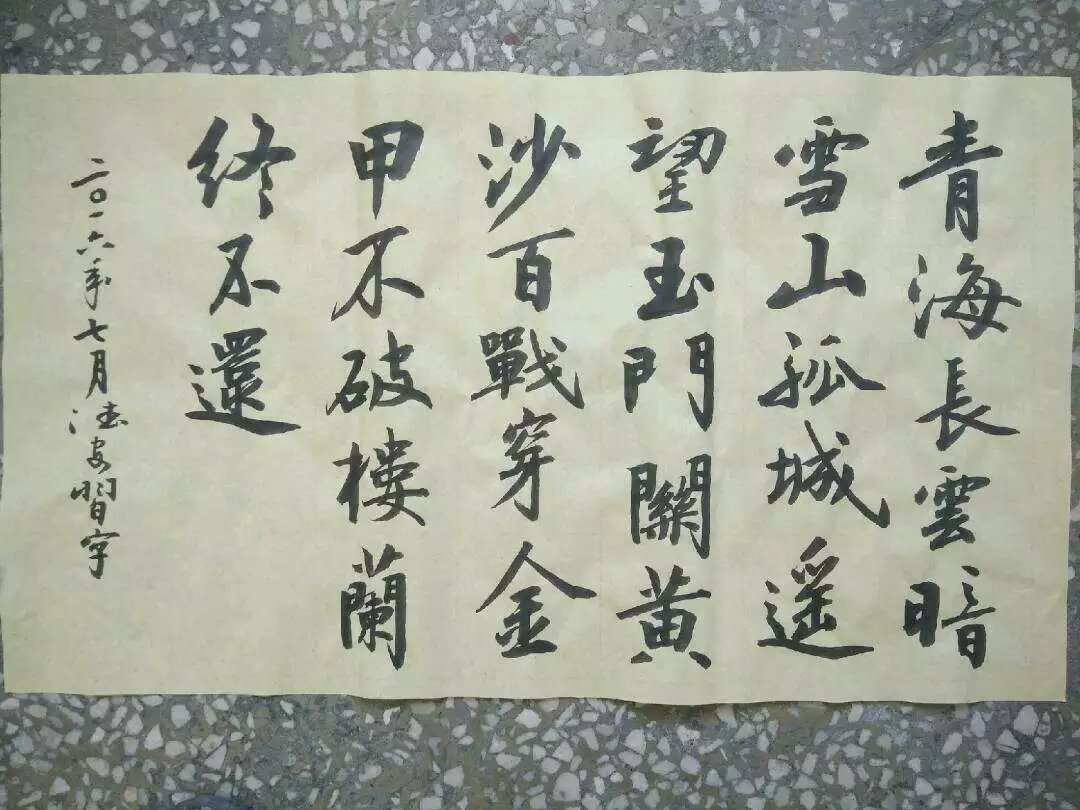 青海長雲暗
雪山孤城遥
望玉門關黄
沙百戰穿金
甲不破樓蘭
終不還
二〇一六年七月法安習字